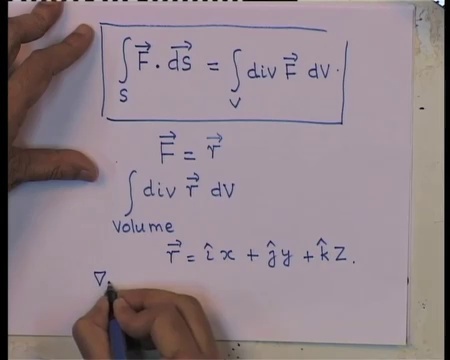 ∫_S F⃗ · dS⃗ = ∫_V div F⃗ dV.
F⃗ = r⃗
∫_volume div r⃗ dV
r⃗ = îx + ĵy + k̂z.
∇.